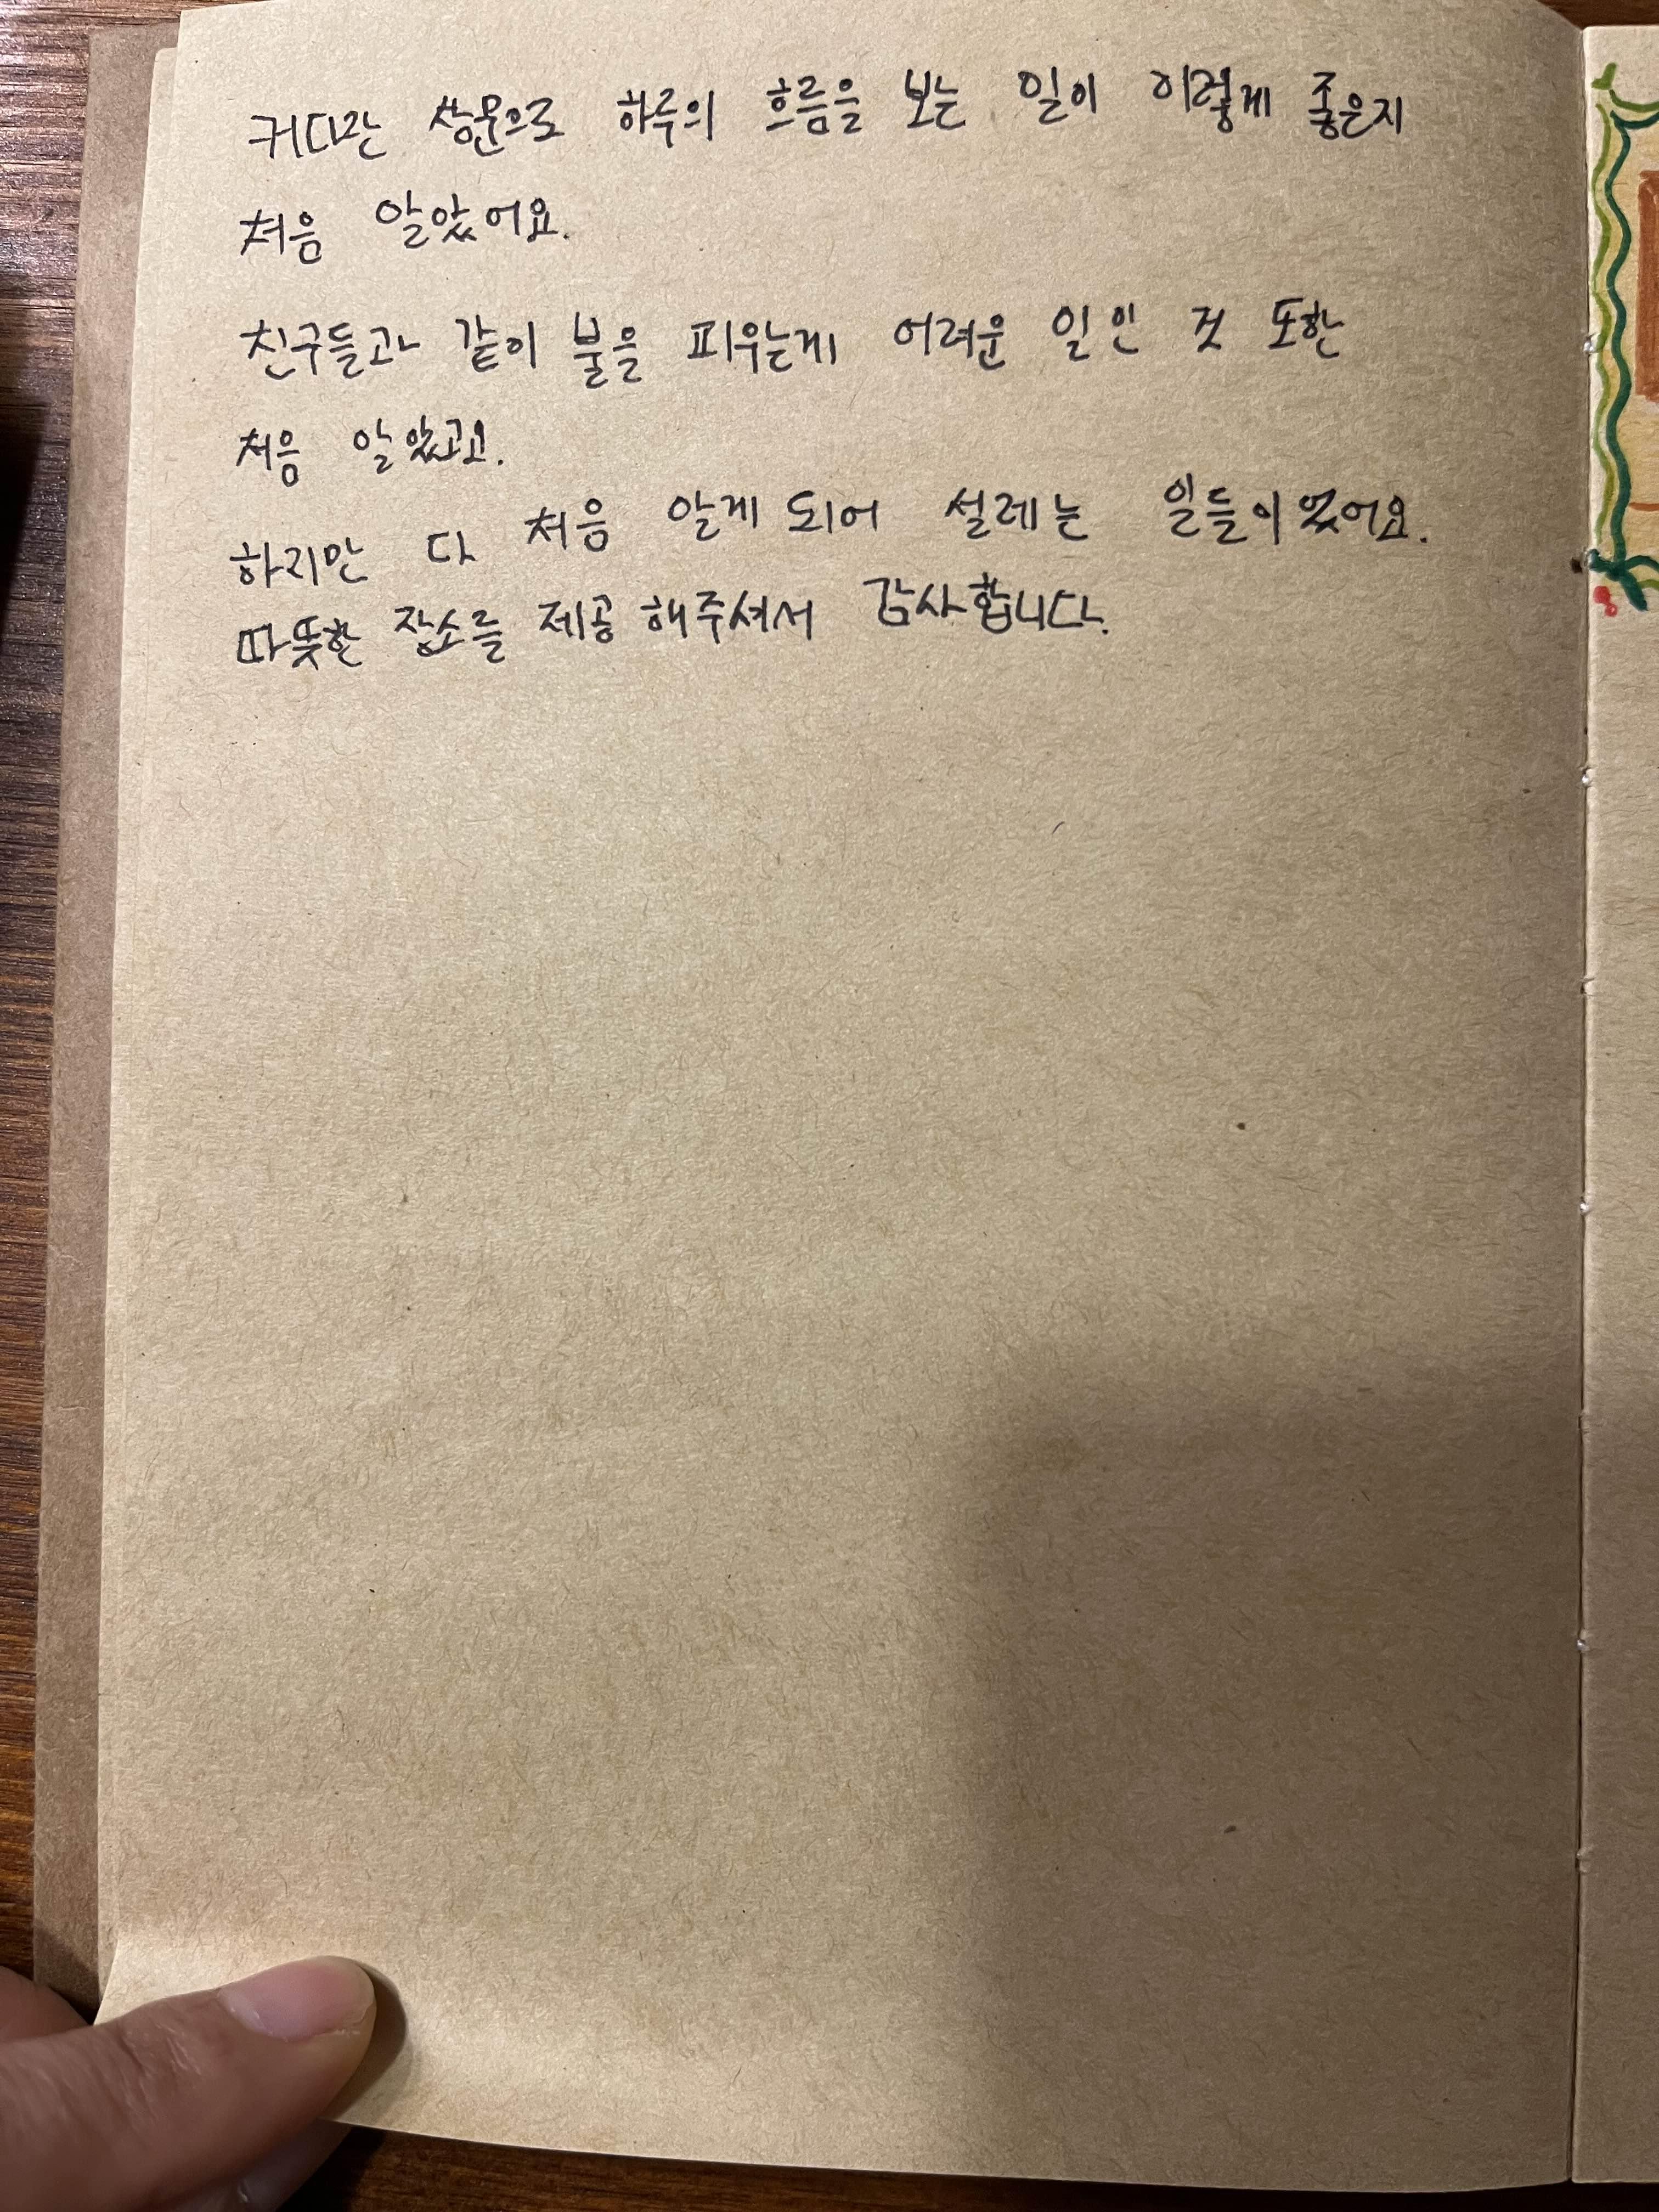 커다란 창문으로 하루의 흐름을 보는 일이 이렇게 좋은지
처음 알았어요.
친구들과 같이 불을 피우는게 어려운 일인 것 또한
처음 알았고요.
하지만 다 처음 알게 되어 설레는 일들이었어요.
따뜻한 장소를 제공해주셔서 감사합니다.